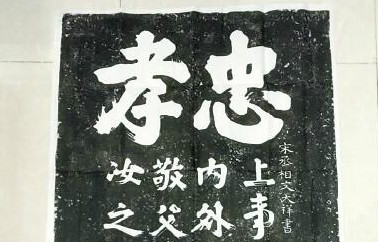 忠孝
宋丞相文天祥書
上事
内外
敬父
汝之